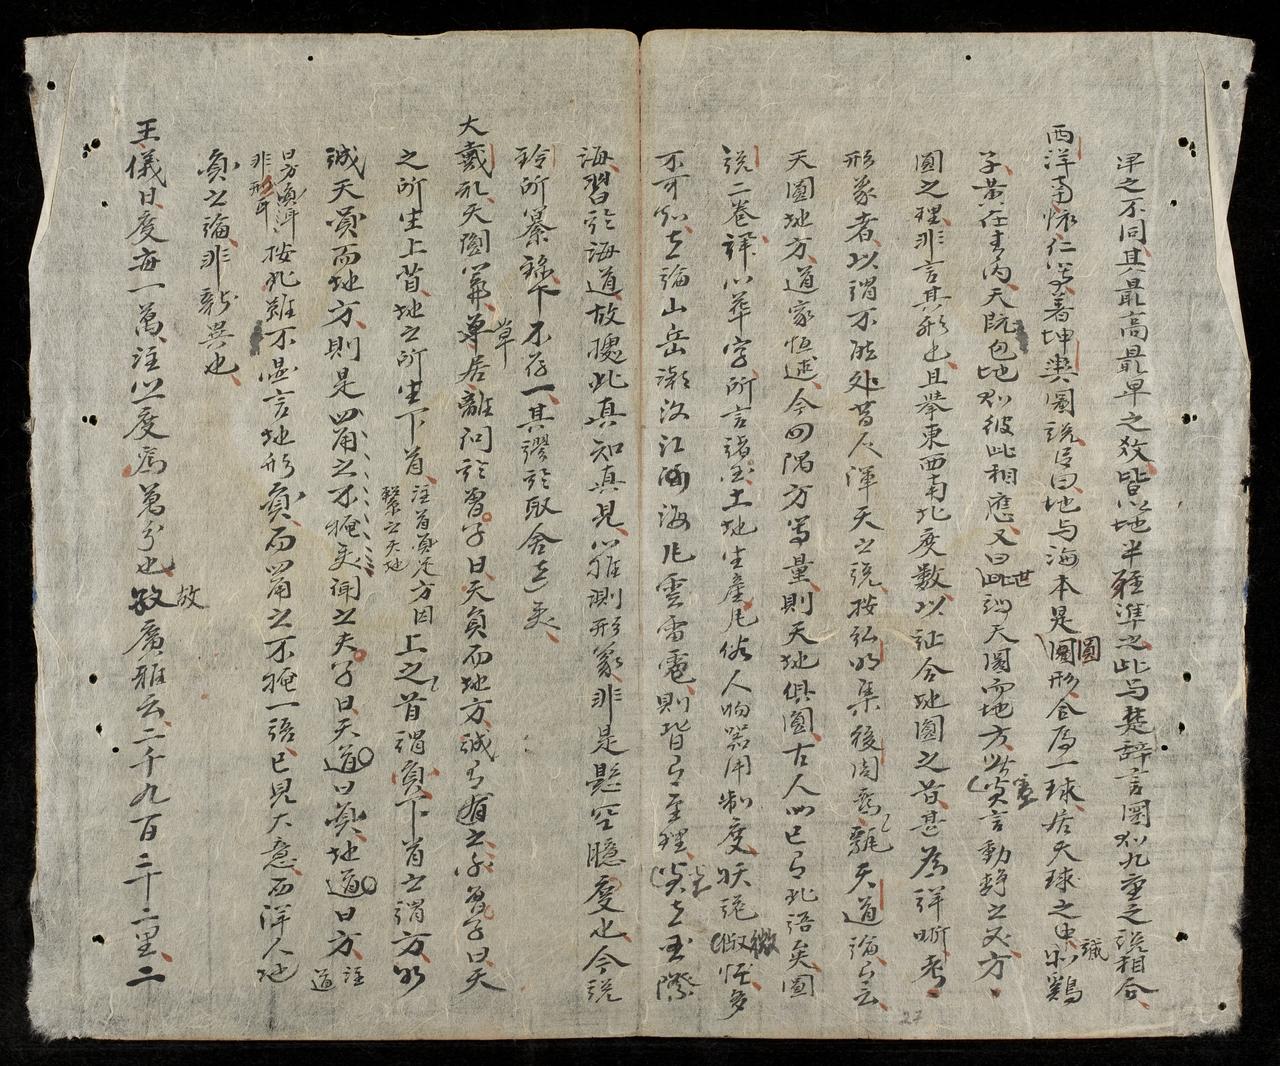 卑之不同其最高最卑之数皆以地半徑準之此与楚辞言圜則九重之说相合
西洋南怀仁所著坤輿圖说曰地与海本是圓形合爲一球居天球之中誠如鷄
子黄在青内天既包地則彼此相應又曰世謂天圜而地方此蓋言動静之义方
圓之理非言其形也且舉東西南北度數以証合地圓之旨甚為詳晰考
形象者以謂不能处昔人渾天之説按弘明集後周甄鸞天道論云
天圓地方道家恒述今四隅方等量則天地俱圓古人以已有此語矣圖
说二卷詳以華字所言諸國土地生產凡俗人物器用制度狀貌微怪多
不可知至論山岳潮汐江河海凡雲雷電則皆有至理蓋其國際
海習於海道故據此真知真見以推測形象非是懸空臆度也今説
鈴所纂錄下不存一其謬於取舍甚矣
大戴礼天圓篇單居離问於曾子曰天員而地方誠有之乎曾子曰天
之所生上首地之所生下首注首員足方因繫之天地上首之謂員下首之謂方如
誠天員而地方則是四角之不揜矣闻之夫子曰天道曰員地道曰方注道
曰方員耳非形耳按此雖不温言地形員而四角之不掩一語已見大意西洋人地
員之論非新異也
王儀曰度每一萬注以度爲萬分也故廣雅云二千九百二十二里二